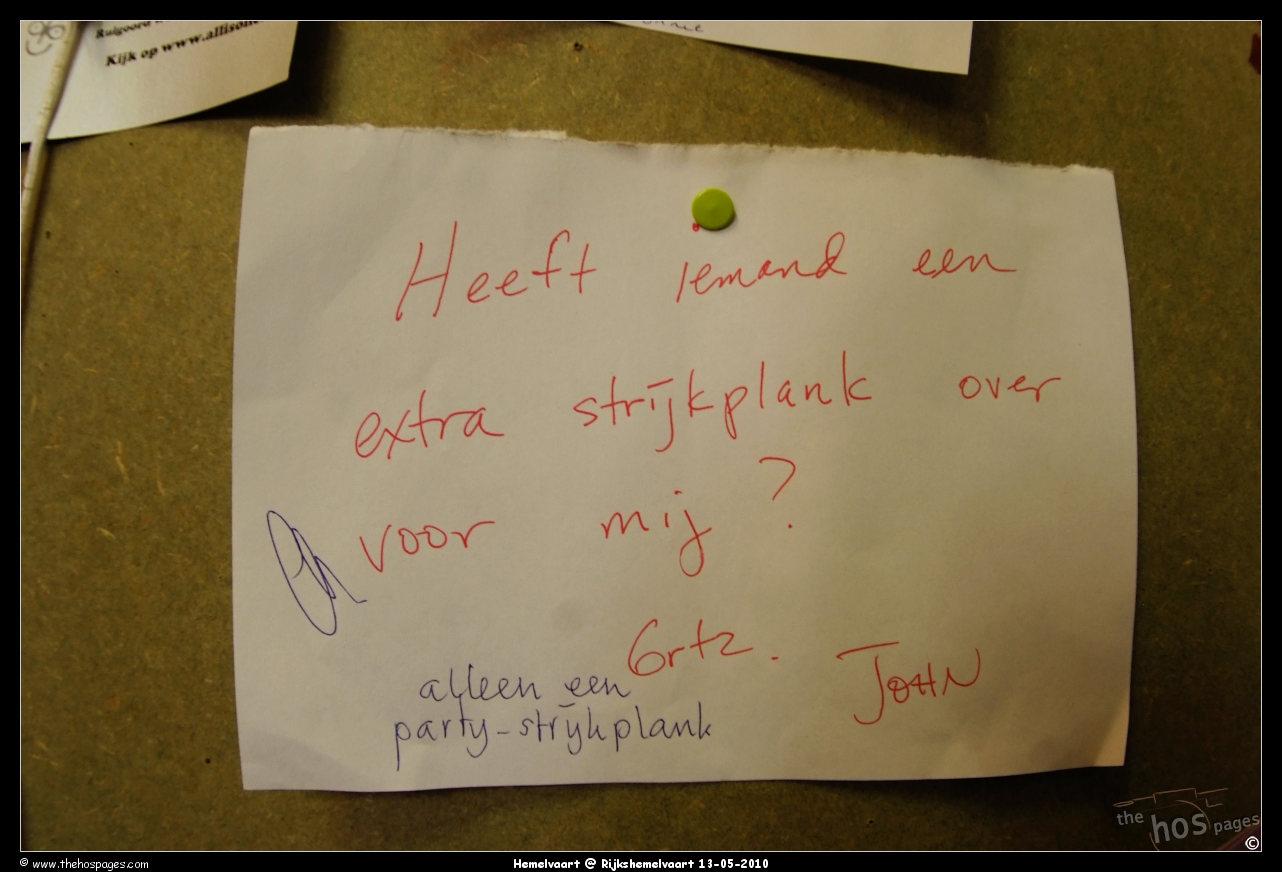 Ruigoord
Kijk op www.allison
Heeft iemand een
extra strijkplank over
voor mij ?
Grtz. JOHN
alleen een
party-strijkplank
the hos pages
©
© www.thehospages.com
Hemelvaart @ Rijkshemelvaart 13-05-2010